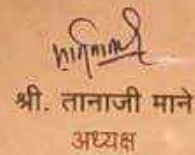 श्री. तानाजी माने
अध्यक्ष